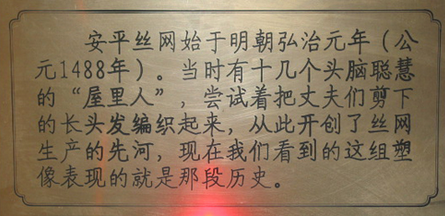 安平丝网始于明朝弘治元年（公
元1488年）。当时有十几个头脑聪慧
的“屋里人”，尝试着把丈夫们剪下
的长头发编织起来，从此开创了丝网
生产的先河，现在我们看到的这组塑
像表现的就是那段历史。